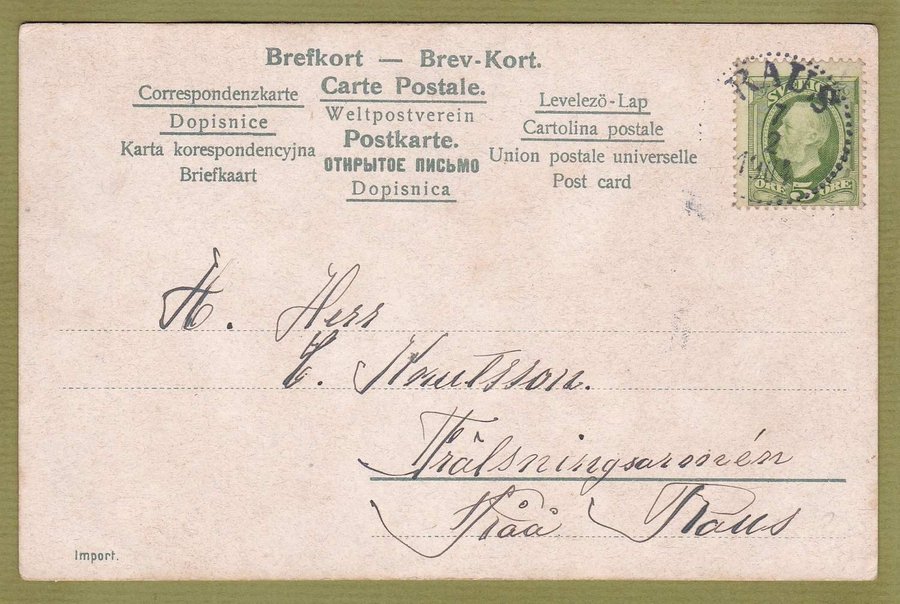 Brefkort — Brev-Kort.
Correspondenzkarte
Dopisnice
Karta korespondencyjna
Briefkaart
Carte Postale.
Weltpostverein
Postkarte.
ОТКРЫТОЕ ПИСЬМО
Dopisnica
Levelező-Lap
Cartolina postale
Union postale universelle
Post card
RAUS
2
SVERIGE
ÖRE 5 ÖRE
H. Herr
C. Knutsson.
Frälsningsarmén
Råå Raus
Import.